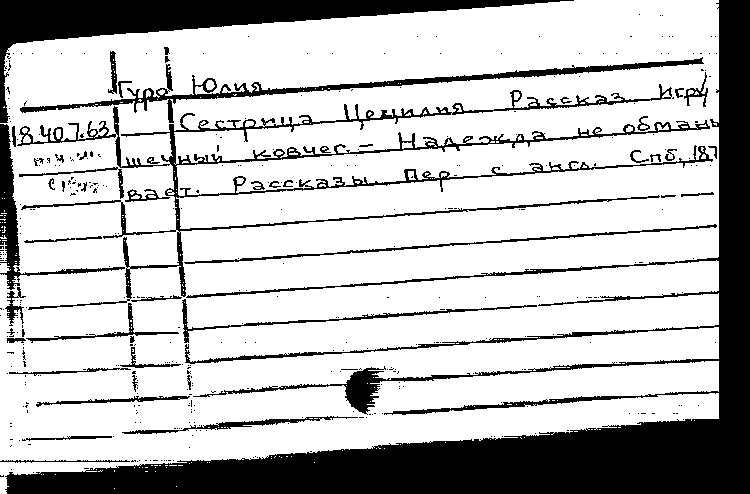 Гуро Юлия
18.40.7.63 Сестрица Цецилия Рассказ Игру-
шечный ковчег. – Надежда не обманы
вает. Рассказы. Пер. с англ. Спб., 187